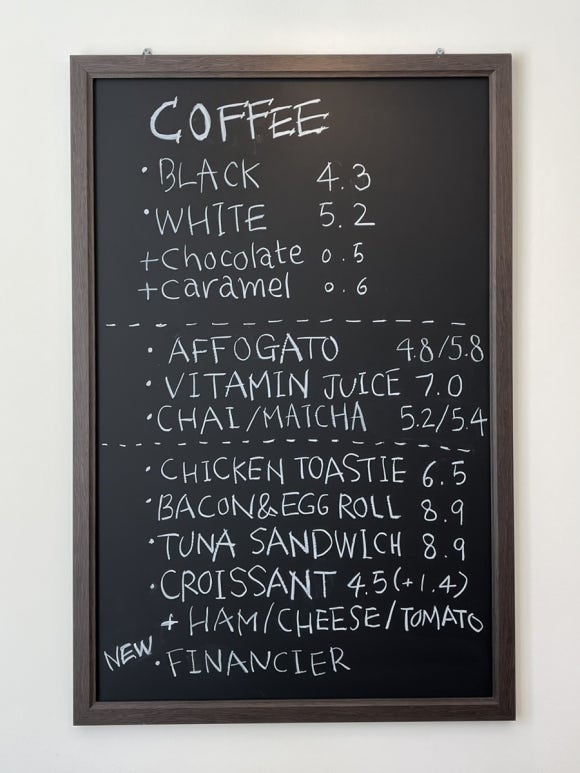 COFFEE
· BLACK 4.3
· WHITE 5.2
+Chocolate 0.5
+caramel 0.6
· AFFOGATO 4.8/5.8
· VITAMIN JUICE 7.0
· CHAI/MATCHA 5.2/5.4
· CHICKEN TOASTIE 6.5
· BACON&EGG ROLL 8.9
· TUNA SANDWICH 8.9
· CROISSANT 4.5(+1.4)
+ HAM/CHEESE/TOMATO
NEW · FINANCIER